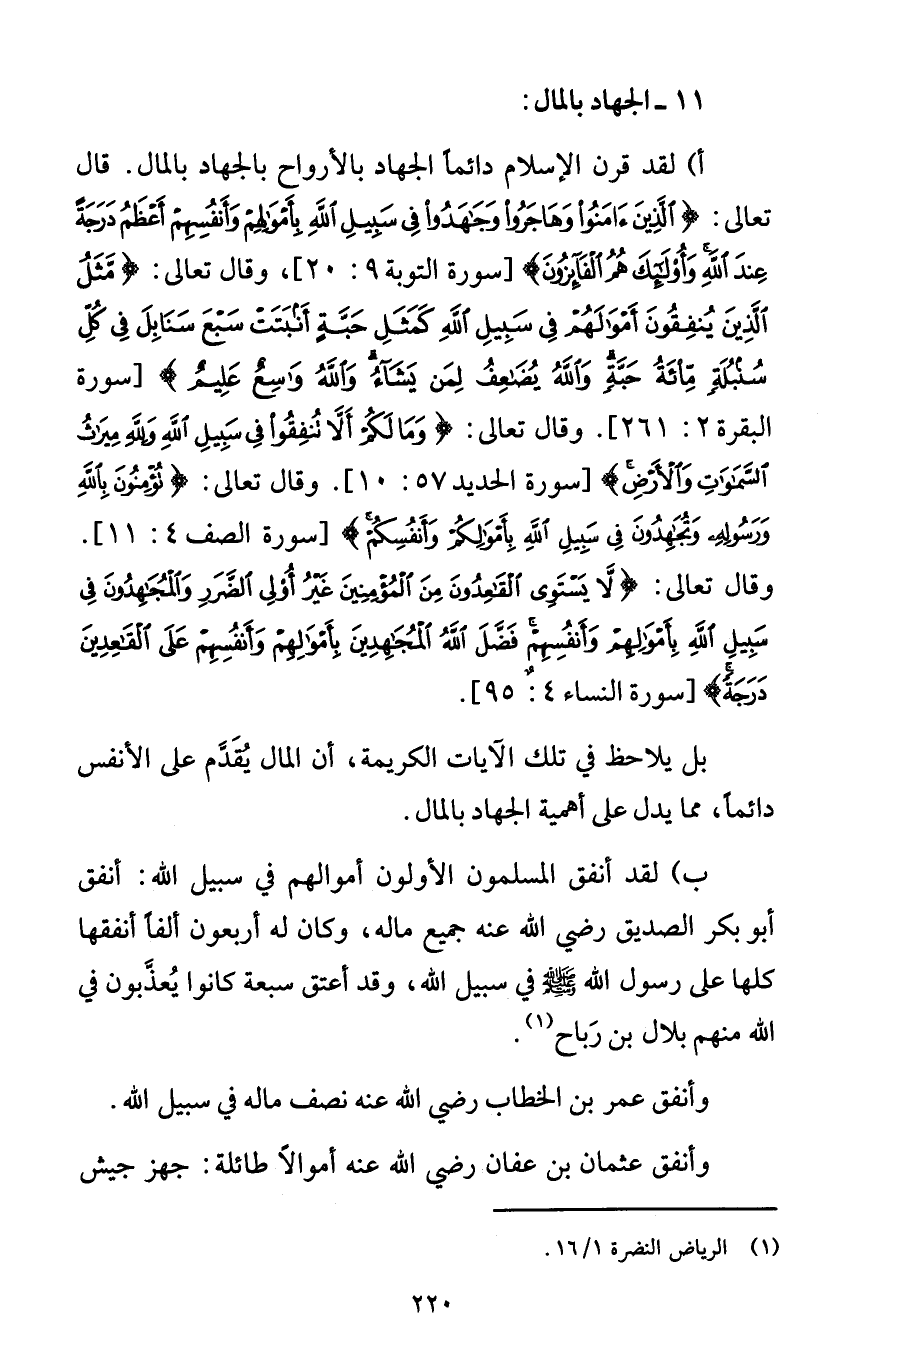 ١١ ـ الجهاد بالمال :
أ) لقد قرن الإسلام دائماً الجهاد بالأرواح بالجهاد بالمال. قال
تعالى: ﴿ ٱلَّذِينَ ءَامَنُوا۟ وَهَاجَرُوا۟ وَجَٰهَدُوا۟ فِى سَبِيلِ ٱللَّهِ بِأَمْوَٰلِهِمْ وَأَنفُسِهِمْ أَعْظَمُ دَرَجَةً
عِندَ ٱللَّهِ ۚ وَأُو۟لَٰٓئِكَ هُمُ ٱلْفَآئِزُونَ﴾ [سورة التوبة ٩ : ٢٠]، وقال تعالى: ﴿ مَّثَلُ
ٱلَّذِينَ يُنفِقُونَ أَمْوَٰلَهُمْ فِى سَبِيلِ ٱللَّهِ كَمَثَلِ حَبَّةٍ أَنۢبَتَتْ سَبْعَ سَنَابِلَ فِى كُلِّ
سُنۢبُلَةٍ مِّا۟ئَةُ حَبَّةٍ ۗ وَٱللَّهُ يُضَٰعِفُ لِمَن يَشَآءُ ۗ وَٱللَّهُ وَٰسِعٌ عَلِيمٌ ﴾ [سورة
البقرة ٢ : ٢٦١]. وقال تعالى: ﴿ وَمَا لَكُمْ أَلَّا تُنفِقُوا۟ فِى سَبِيلِ ٱللَّهِ وَلِلَّهِ مِيرَٰثُ
ٱلسَّمَٰوَٰتِ وَٱلْأَرْضِ ۚ﴾ [سورة الحديد ٥٧ : ١٠]. وقال تعالى: ﴿ تُؤْمِنُونَ بِٱللَّهِ
وَرَسُولِهِۦ وَتُجَٰهِدُونَ فِى سَبِيلِ ٱللَّهِ بِأَمْوَٰلِكُمْ وَأَنفُسِكُمْ ۚ ﴾ [سورة الصف ٤ : ١١].
وقال تعالى: ﴿ لَّا يَسْتَوِى ٱلْقَٰعِدُونَ مِنَ ٱلْمُؤْمِنِينَ غَيْرُ أُو۟لِى ٱلضَّرَرِ وَٱلْمُجَٰهِدُونَ فِى
سَبِيلِ ٱللَّهِ بِأَمْوَٰلِهِمْ وَأَنفُسِهِمْ ۚ فَضَّلَ ٱللَّهُ ٱلْمُجَٰهِدِينَ بِأَمْوَٰلِهِمْ وَأَنفُسِهِمْ عَلَى ٱلْقَٰعِدِينَ
دَرَجَةً ۚ﴾ [سورة النساء ٤ : ٩٥].
بل يلاحظ في تلك الآيات الكريمة، أن المال يُقَدَّم على الأنفس
دائماً، مما يدل على أهمية الجهاد بالمال.
ب) لقد أنفق المسلمون الأولون أموالهم في سبيل الله: أنفق
أبو بكر الصديق رضي الله عنه جميع ماله، وكان له أربعون ألفاً أنفقها
كلها على رسول الله ﷺ في سبيل الله، وقد أعتق سبعة كانوا يُعذَّبون في
الله منهم بلال بن رَباح(١).
وأنفق عمر بن الخطاب رضي الله عنه نصف ماله في سبيل الله.
وأنفق عثمان بن عفان رضي الله عنه أموالاً طائلة: جهز جيش
(١) الرياض النضرة ١/ ١٦.
٢٢٠